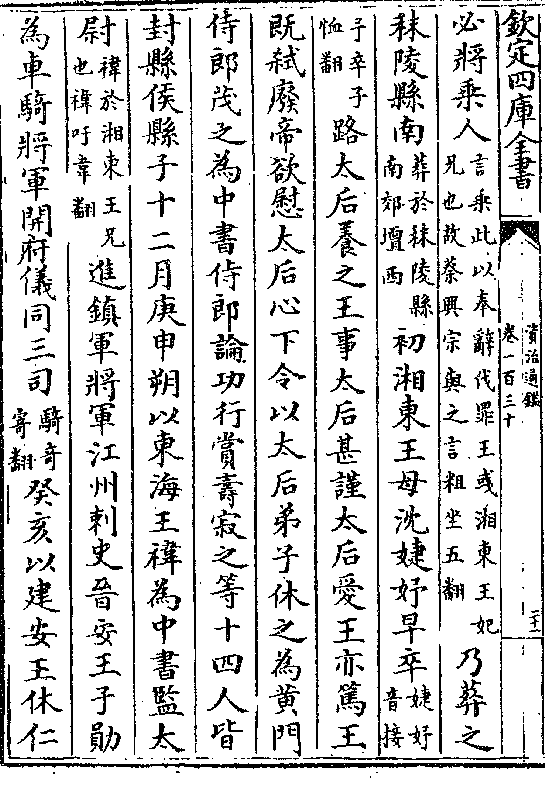 欽定四庫全書
資治通鑑
卷一百三十
二十一
必將乗人言乗此以奉辭伐罪王彧湘東王妃兄也故蔡興宗與之言粗坐五翻乃葬之
秣陵縣南葬於秣陵縣南郊壇西初湘東王母沈婕妤早卒婕妤音接
予卒子恤翻路太后養之王事太后甚謹太后愛王亦篤王
既弑廢帝欲慰太后心下令以太后弟子休之為黃門
侍郎茂之為中書侍郎論功行賞壽寂之等十四人皆
封縣侯縣子十二月庚申朔以東海王禕為中書監太
尉禕於湘東王兄也禕吁韋翻進鎮軍將軍江州刺史晉安王子勛
為車騎將軍開府儀同三司騎奇寄翻癸亥以建安王休仁